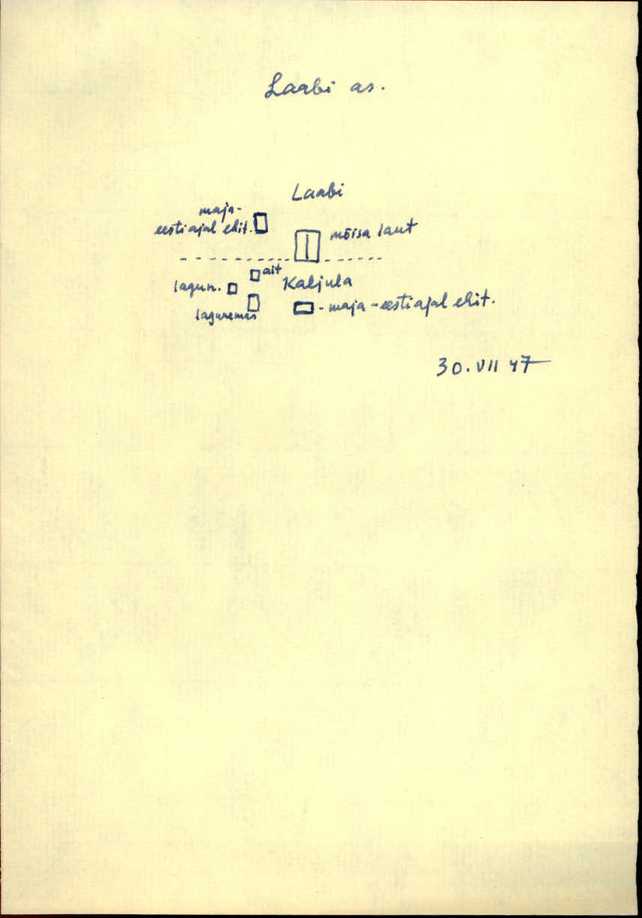 Laabi as.
Laabi
maja-
eesti ajal ehit.
mõisa laut
ait
Kaljula
lagun.
lagunemis
- maja - eesti ajal ehit.
30. VII 47